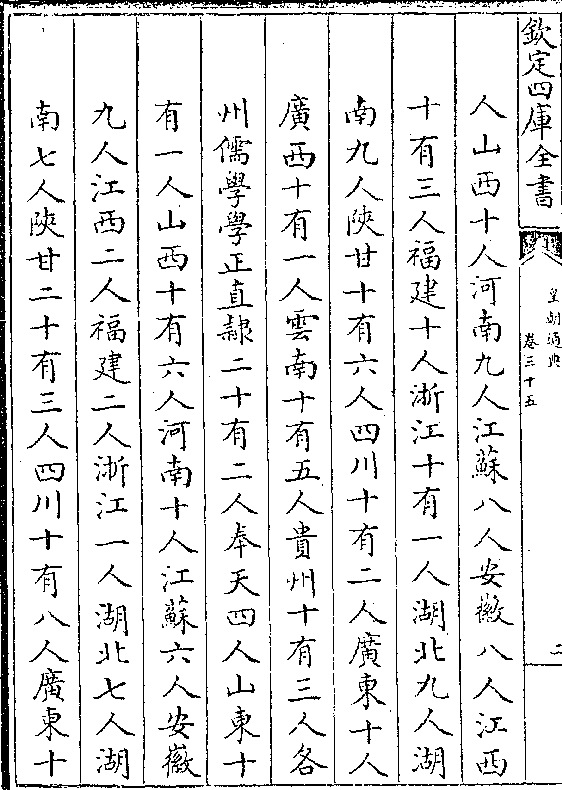 欽定四庫全書
皇朝通典
卷三十五
二
人山西十人河南九人江蘇八人安徽八人江西
十有三人福建十人浙江十有一人湖北九人湖
南九人陜甘十有六人四川十有二人廣東十人
廣西十有一人雲南十有五人貴州十有三人各
州儒學學正直隸二十有二人奉天四人山東十
有一人山西十有六人河南十人江蘇六人安徽
九人江西二人福建二人浙江一人湖北七人湖
南七人陜甘二十有三人四川十有八人廣東十